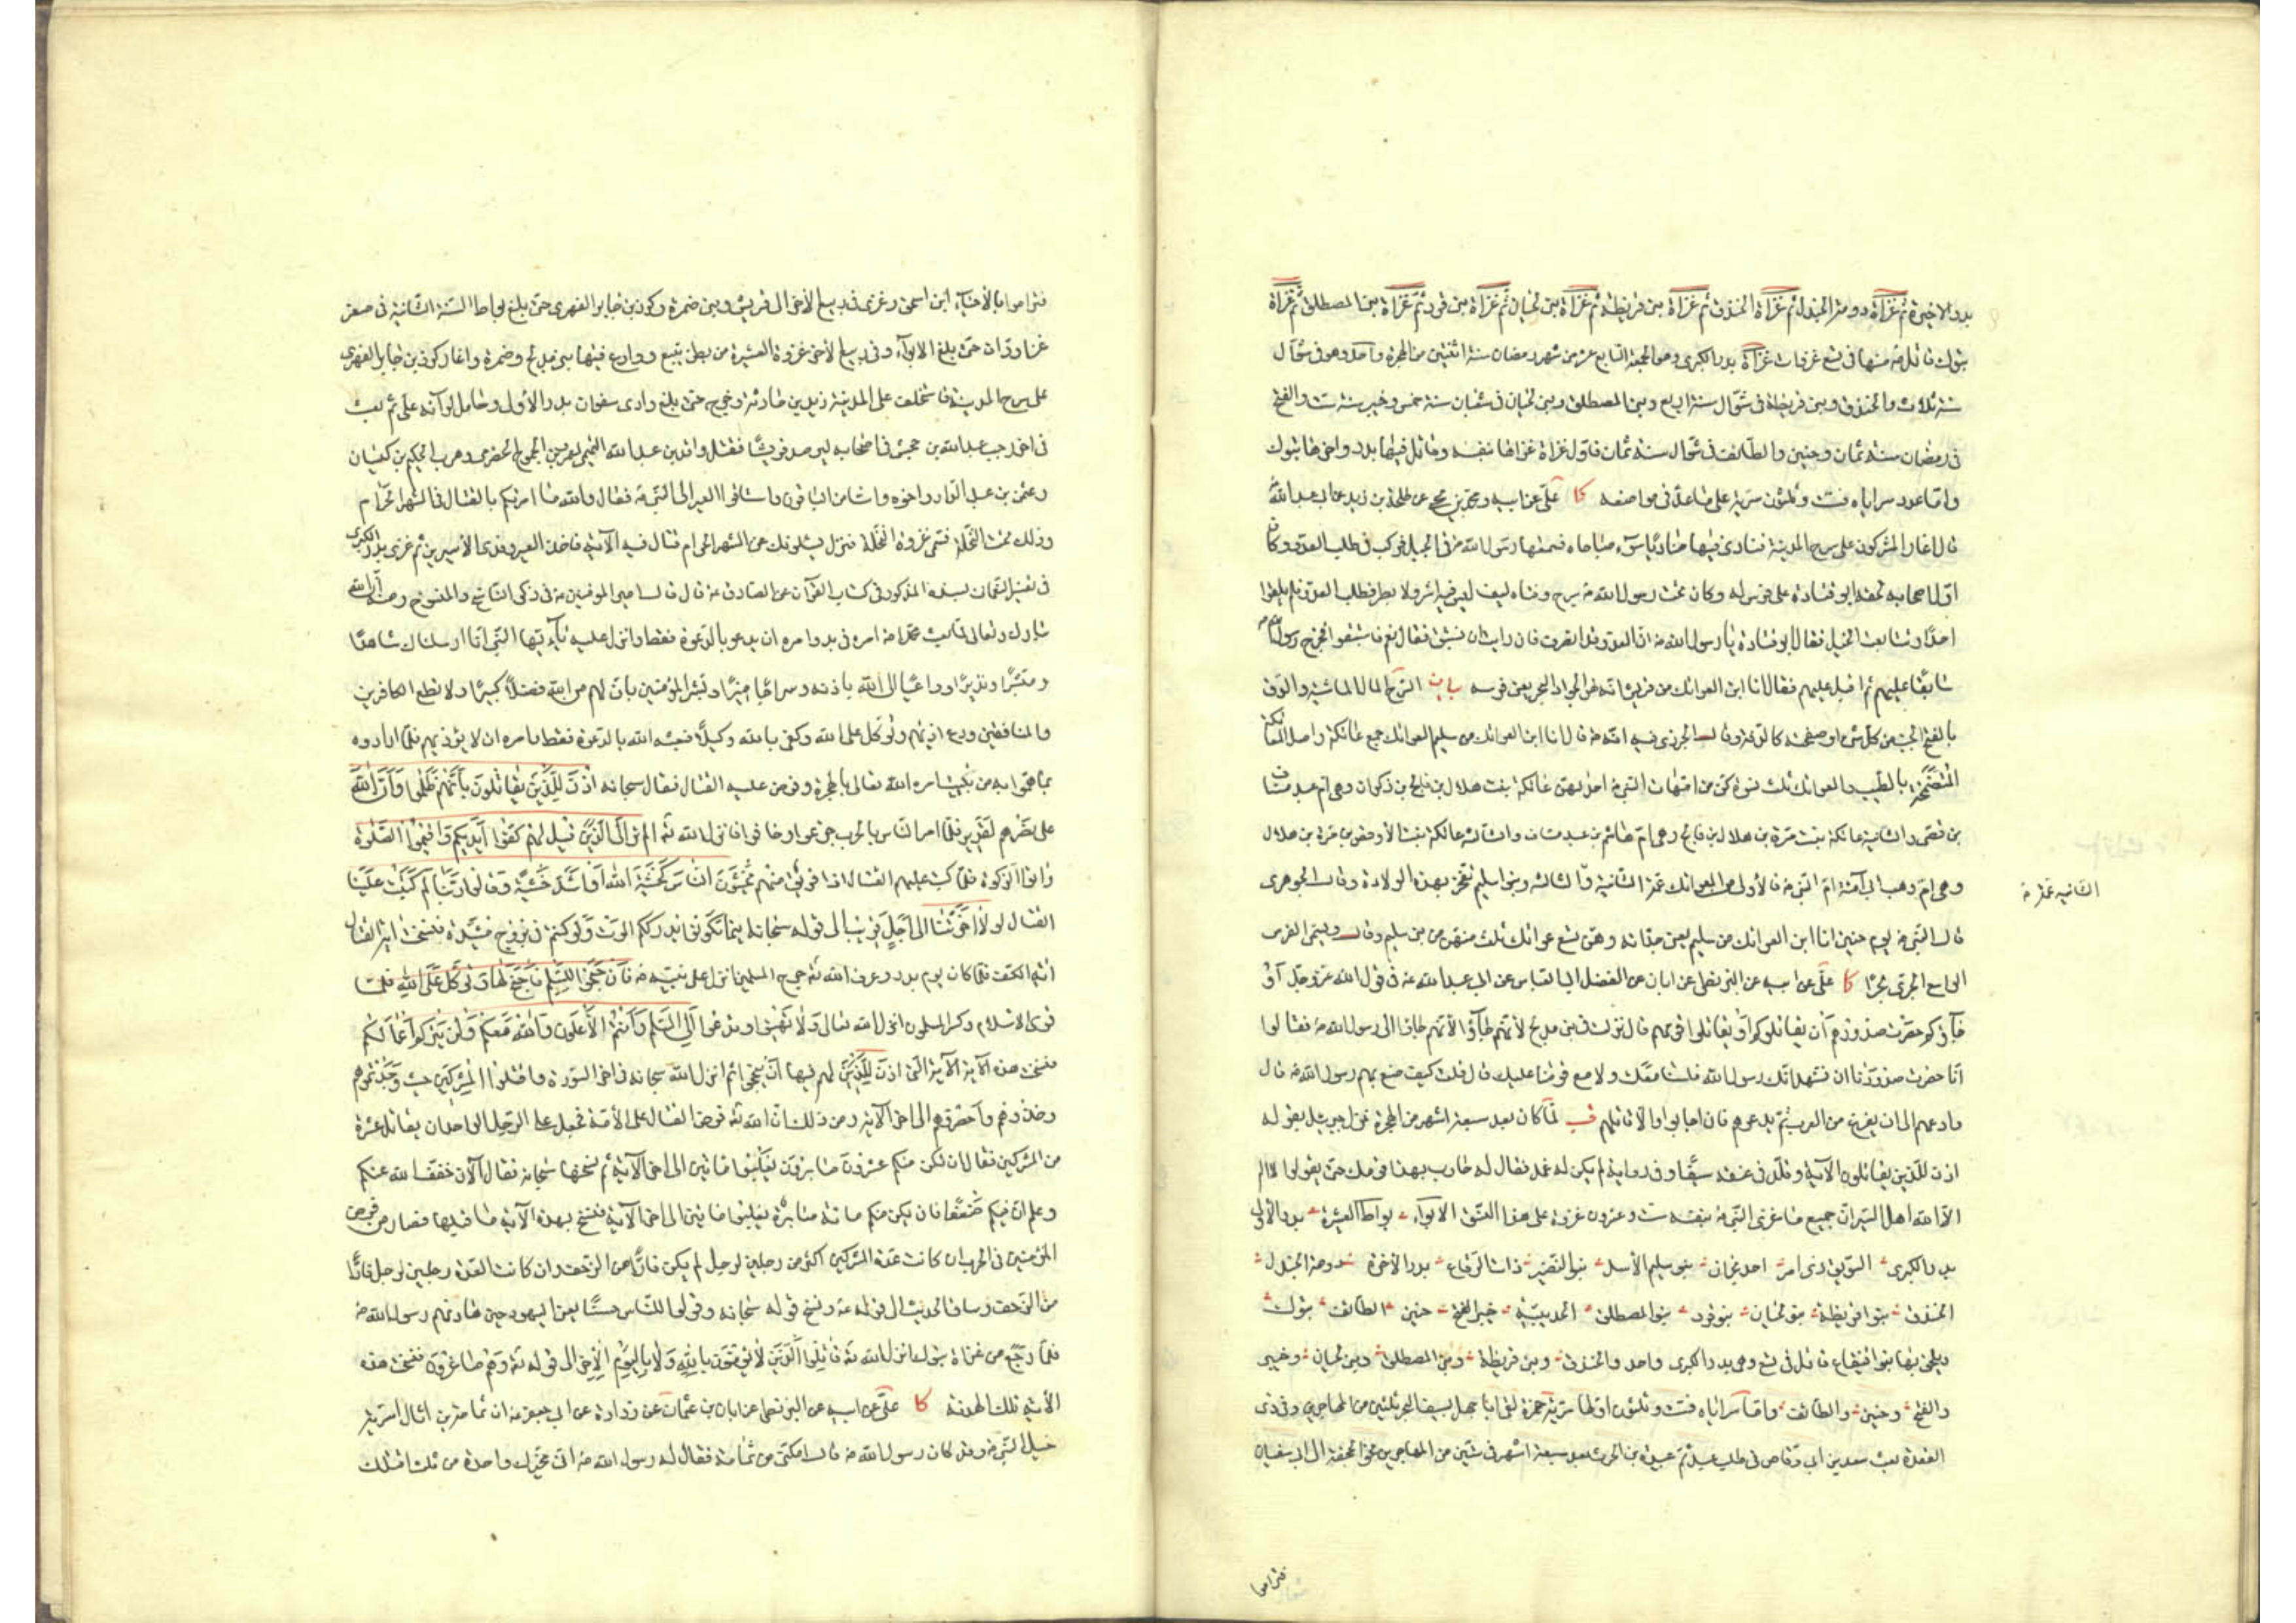 بدر الاخيرة ثم غزاة دومة الجندل ثم غزاة الخندق ثم غزاة بني قريظة ثم غزاة بني لحيان ثم غزاة بني قرد ثم غزاة بني المصطلق ثم غزاة
تبوك قاتل ۖ منها في تسع غزوات غزاة بدر الكبرى وهو الجمعة السابع عشر من شهر رمضان سنة اثنتين من الهجرة واحد وهو في شوال
سنة ثلاث والخندق وبني قريظة في شوال سنة اربع وبني المصطلق وبني لحيان في شعبان سنة خمس وخيبر سنة ست والفتح
في رمضان سنة ثمان وحنين والطائف في شوال سنة ثمان فاول غزاة غزاها بنفسه وقاتل فيها بدر واخرها تبوك
واما عدد سراياه فست وثلثون سرية على ما عد في مواضعه كا علي عن ابيه ومحمد بن يحيى عن طلحة بن زيد عن ابي عبد الله
قال اغار المشركون على سرح المدينة فنادى فيها مناد يا سوء صباحاه فسمعها رسول الله في الجبل فركب في طلب العدو وكان
اول اصحابه لحقه ابو قتادة على فرس له وكان تحت رسول الله سرج دفتاه ليف ليس فيه اشر ولا بطر فطلب العدو فلم يلقوا
احدا وتتابعت الخيل فقال ابو قتادة يا رسول الله ان العدو قد انصرف فان رايت ان نستبق فقال نعم فاستبقوا فخرج رسول الله
سابقا عليهم ثم اقبل عليهم فقال انا ابن العواتك من قريش انه لهو الجواد البحر يعني فرسه بيان السرح المال الماشية والدف
بالفتح الجنب من كل شيء او صفحته كالدفة وقال الجزري فيه انه قال انا ابن العواتك من سليم العواتك جمع عاتكة واصل العاتكة
المتضمخة بالطيب والعواتك ثلث نسوة كن من امهات النبي احدهن عاتكة بنت هلال بن فالج بن ذكوان وهي ام عبد مناف
بن قصي والثانية عاتكة بنت مرة بن هلال بن فالج وهي ام هاشم بن عبد مناف والثالثة عاتكة بنت الاوقص بن مرة بن هلال
وهي ام وهب ابي آمنة ام النبي فالاولى من العواتك عمة الثانية والثالثة وبنو سليم تفخر بهذه الولادة وقال الجوهري
الثانية عمة
قال النبي يوم حنين انا ابن العواتك من سليم يعني جداته وهن تسع عواتك ثلث منهن من بني سليم وقال ويسمى الفرس
الواسع الجري بحرا كا علي عن ابيه عن البزنطي عن ابان عن الفضل ابي العباس عن ابي عبد الله في قول الله عز وجل او
جاؤكم حصرت صدورهم ان يقاتلوكم او يقاتلوا قومهم قال نزلت في بني مدلج لانهم جاؤا الى رسول الله فقالوا
انا حصرت صدورنا ان نشهد انك رسول الله فلسنا معك ولا مع قومنا عليك قال قلت كيف صنع بهم رسول الله قال
وادعهم الى ان يفرغ من العرب ثم يدعوهم فان اجابوا والا قاتلهم قب لما كان بعد سبعة اشهر من الهجرة نزل جبرئيل بقوله
اذن للذين يقاتلون الآية وقلد في عنقه سيفا وفي رواية لم يكن له غمد فقال له حارب بهذا قومك حتى يقولوا لا اله
الا الله اهل السير ان جميع ما غزى النبي بنفسه ست وعشرون غزوة على هذا النسق الابواء بواط العشيرة بدر الاولى
بدر الكبرى السويق ذي امر احد نجران بنو سليم الاسد بنو النضير ذات الرقاع بدر الآخرة دومة الجندل
الخندق بنو قريظة بنو لحيان بنو قرد بنو المصطلق الحديبية خيبر الفتح حنين الطائف تبوك
ويلحق بها بنو قينقاع قاتل في تسع وهي بدر الكبرى واحد والخندق وبني قريظة وبني المصطلق وبني لحيان وخيبر
والفتح وحنين والطائف واما سراياه فست وثلثون اولها سرية حمزة لقي ابا جهل بسيف البحر في ثلثين من المهاجرين وفي ذي
القعدة بعث سعد بن ابي وقاص في طلب عير ثم عبيدة بن الحرث بعد سبعة اشهر في ستين من المهاجرين نحو الجحفة الى ابي سفيان
فتراموا
فتراموا بالاحياء ابن اسحق وغزى في ربيع الآخر الى قريش وبني ضمرة وكرز بن جابر الفهري حتى بلغ بواط السنة الثانية في صفر
غزا ودان حتى بلغ الابواء وفي ربيع الآخر غزوة العشيرة من بطن ينبع ووادع فيها بني مدلج وضمرة واغار كرز بن جابر الفهري
على سرح المدينة فاستخلف على المدينة زيد بن حارثة وخرج حتى بلغ وادي سفوان بدر الاولى وحامل لوائه علي ثم بعث
في آخر رجب عبد الله بن جحش في اصحابه ليرصد قريشا فقتل واقد بن عبد الله التميمي عمرو بن الحضرمي وهرب الحكم بن كيسان
وعثمن بن عبد الله واخوه واستاسر الباقون واستاقوا العير الى النبي فقال والله ما امرتكم بالقتال في الشهر الحرام
وذلك تحت النخلة فسمي غزوة النخلة فنزل يسئلونك عن الشهر الحرام قتال فيه الآية فاخذ العير وفدى الاسيرين ثم غزى بدر الكبرى
في تفسير النعمان بسنده المذكور في كتاب القرآن عن الصادق قال قال امير المؤمنين في ذكر الناسخ والمنسوخ ومنه ان الله
تبارك وتعالى لما بعث محمدا امره في بدو امره ان يدعو بالدعوة فقط وانزل عليه يا ايها النبي انا ارسلناك شاهدا
ومبشرا ونذيرا وداعيا الى الله باذنه وسراجا منيرا وبشر المؤمنين بان لهم من الله فضلا كبيرا ولا تطع الكافرين
والمنافقين ودع اذيهم وتوكل على الله وكفى بالله وكيلا فبعثه الله بالدعوة فقط وامره ان لا يؤذيهم فلما ارادوه
بما هموا به من تبييته امره الله تعالى بالهجرة وفرض عليه القتال فقال سبحانه اذن للذين يقاتلون بانهم ظلموا وان الله
على نصرهم لقدير فلما امر الناس بالحرب جزعوا وخافوا فانزل الله ته الم تر الى الذين قيل لهم كفوا ايديكم واقيموا الصلوة
وآتوا الزكوة فلما كتب عليهم القتال اذا فريق منهم يخشون الناس كخشية الله او اشد خشية وقالوا ربنا لم كتبت علينا
القتال لولا اخرتنا الى اجل قريب الى قوله سبحانه اينما تكونوا يدرككم الموت ولو كنتم في بروج مشيدة فنسخت آية القتال
آية الكف فلما كان يوم بدر وعرف الله ته حرج المسلمين انزل على نبيه فان جنحوا للسلم فاجنح لها وتوكل على الله فلما
قوى الاسلام وكثر المسلمون انزل الله تعالى ولا تهنوا وتدعوا الى السلم وانتم الاعلون والله معكم ولن يتركم اعمالكم
فنسخت هذه الآية الآية التي اذن لهم فيها ان يجنحوا ثم انزل الله سبحانه في آخر السورة واقتلوا المشركين حيث وجدتموهم
وخذوهم واحصروهم الى آخر الآية ومن ذلك ان الله ته فرض القتال على الامة فجعل على الرجل الواحد ان يقاتل عشرة
من المشركين فقال ان يكن منكم عشرون صابرون يغلبوا مائتين الى آخر الآية ثم نسخها سبحانه فقال الآن خفف الله عنكم
وعلم ان فيكم ضعفا فان يكن منكم مائة صابرة يغلبوا مائتين الى آخر الآية فنسخ بهذه الآية ما قبلها فصار من فرض
المؤمنين في الحرب ان كانت عدة المشركين اكثر من رجلين لرجل لم يكن فارا من الزحف وان كانت العدة رجلين لرجل فارا
من الزحف وساق الحديث الى قوله ونسخ قوله سبحانه وقولوا للناس حسنا يعني اليهود حين هادنهم رسول الله
فلما رجع من غزاة تبوك انزل الله ته قاتلوا الذين لا يؤمنون بالله ولا باليوم الآخر الى قوله ته وهم صاغرون فنسخت هذه
الآية تلك الهدنة كا علي عن ابيه عن البزنطي عن ابان بن عثمان عن زرارة عن ابي جعفر ان ثمامة بن اثال اسرته
خيل النبي وقد كان رسول الله قال اللهم امكني من ثمامة فقال له رسول الله اني مخيرك واحدة من ثلث اقتلك